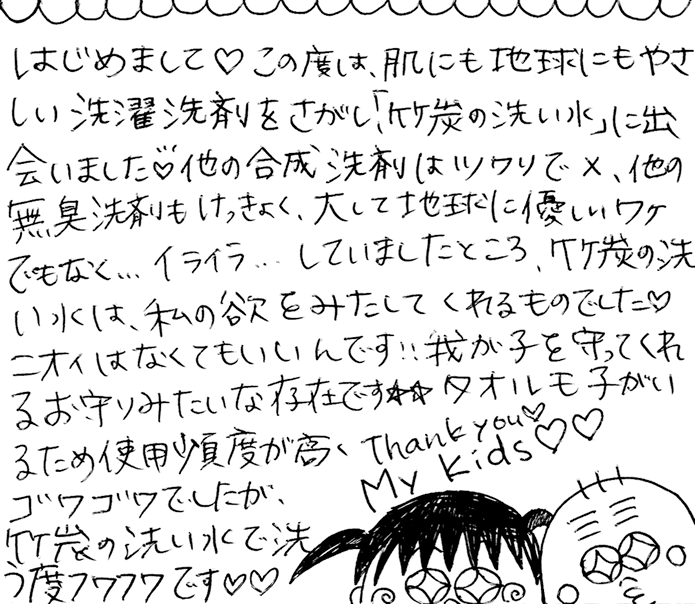 はじめまして♡この度は、肌にも地球にもやさ
しい洗濯洗剤をさがし、「竹炭の洗い水」に出
会いました♡他の合成洗剤はツワリで×、他の
無臭洗剤もけっきょく、大して地球に優しいワケ
でもなく…イライラ…していましたところ、竹炭の洗
い水は、私の欲をみたしてくれるものでした♡
ニオイはなくてもいいんです!!我が子を守ってくれ
るお守りみたいな存在です☆☆タオルも子がい
るため使用頻度が高く
ゴワゴワでしたが、
竹炭の洗い水で洗
う度フワフワです♡♡
Thank you♡
My Kids♡♡